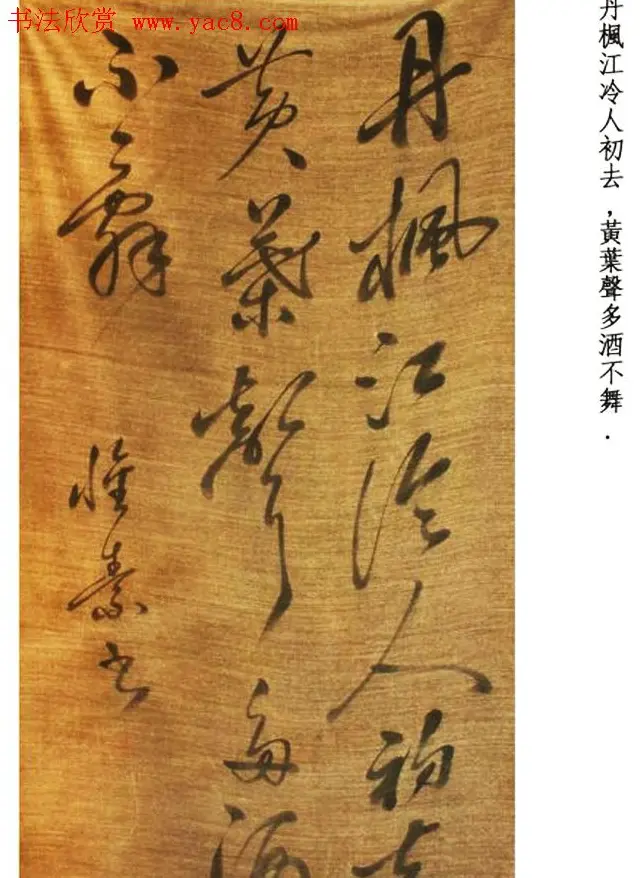 书法欣赏 www.yac8.com
丹楓江冷人初去，黃葉聲多酒不舞．
丹楓江冷人初去
黄葉聲多酒
不辭
素書